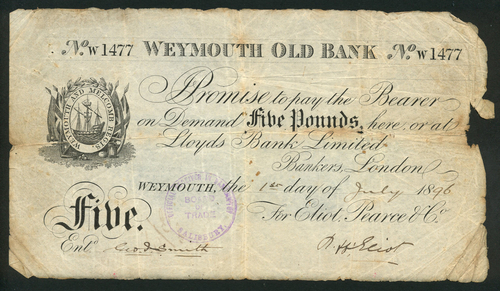 No. W 1477 WEYMOUTH OLD BANK No. W 1477
Promise to pay the Bearer
on Demand Five Pounds, here or at
Lloyds Bank Limited
Bankers, London
WEYMOUTH AND MELCOMB REGIS
WEYMOUTH, the 1st day of July 1896
Five. For Eliot, Pearce & Co.
BOARD
OF
TRADE
SALISBURY
Entd. Geo. J. Smith R. ffs. Eliot